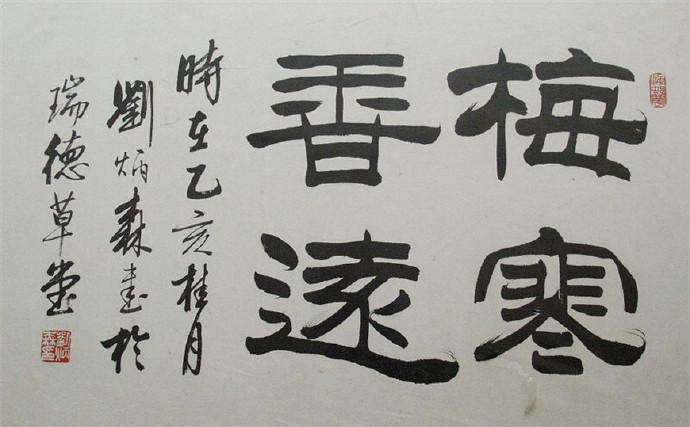 梅寒
香遠
時在乙亥桂月
劉炳森書於
瑞德草堂